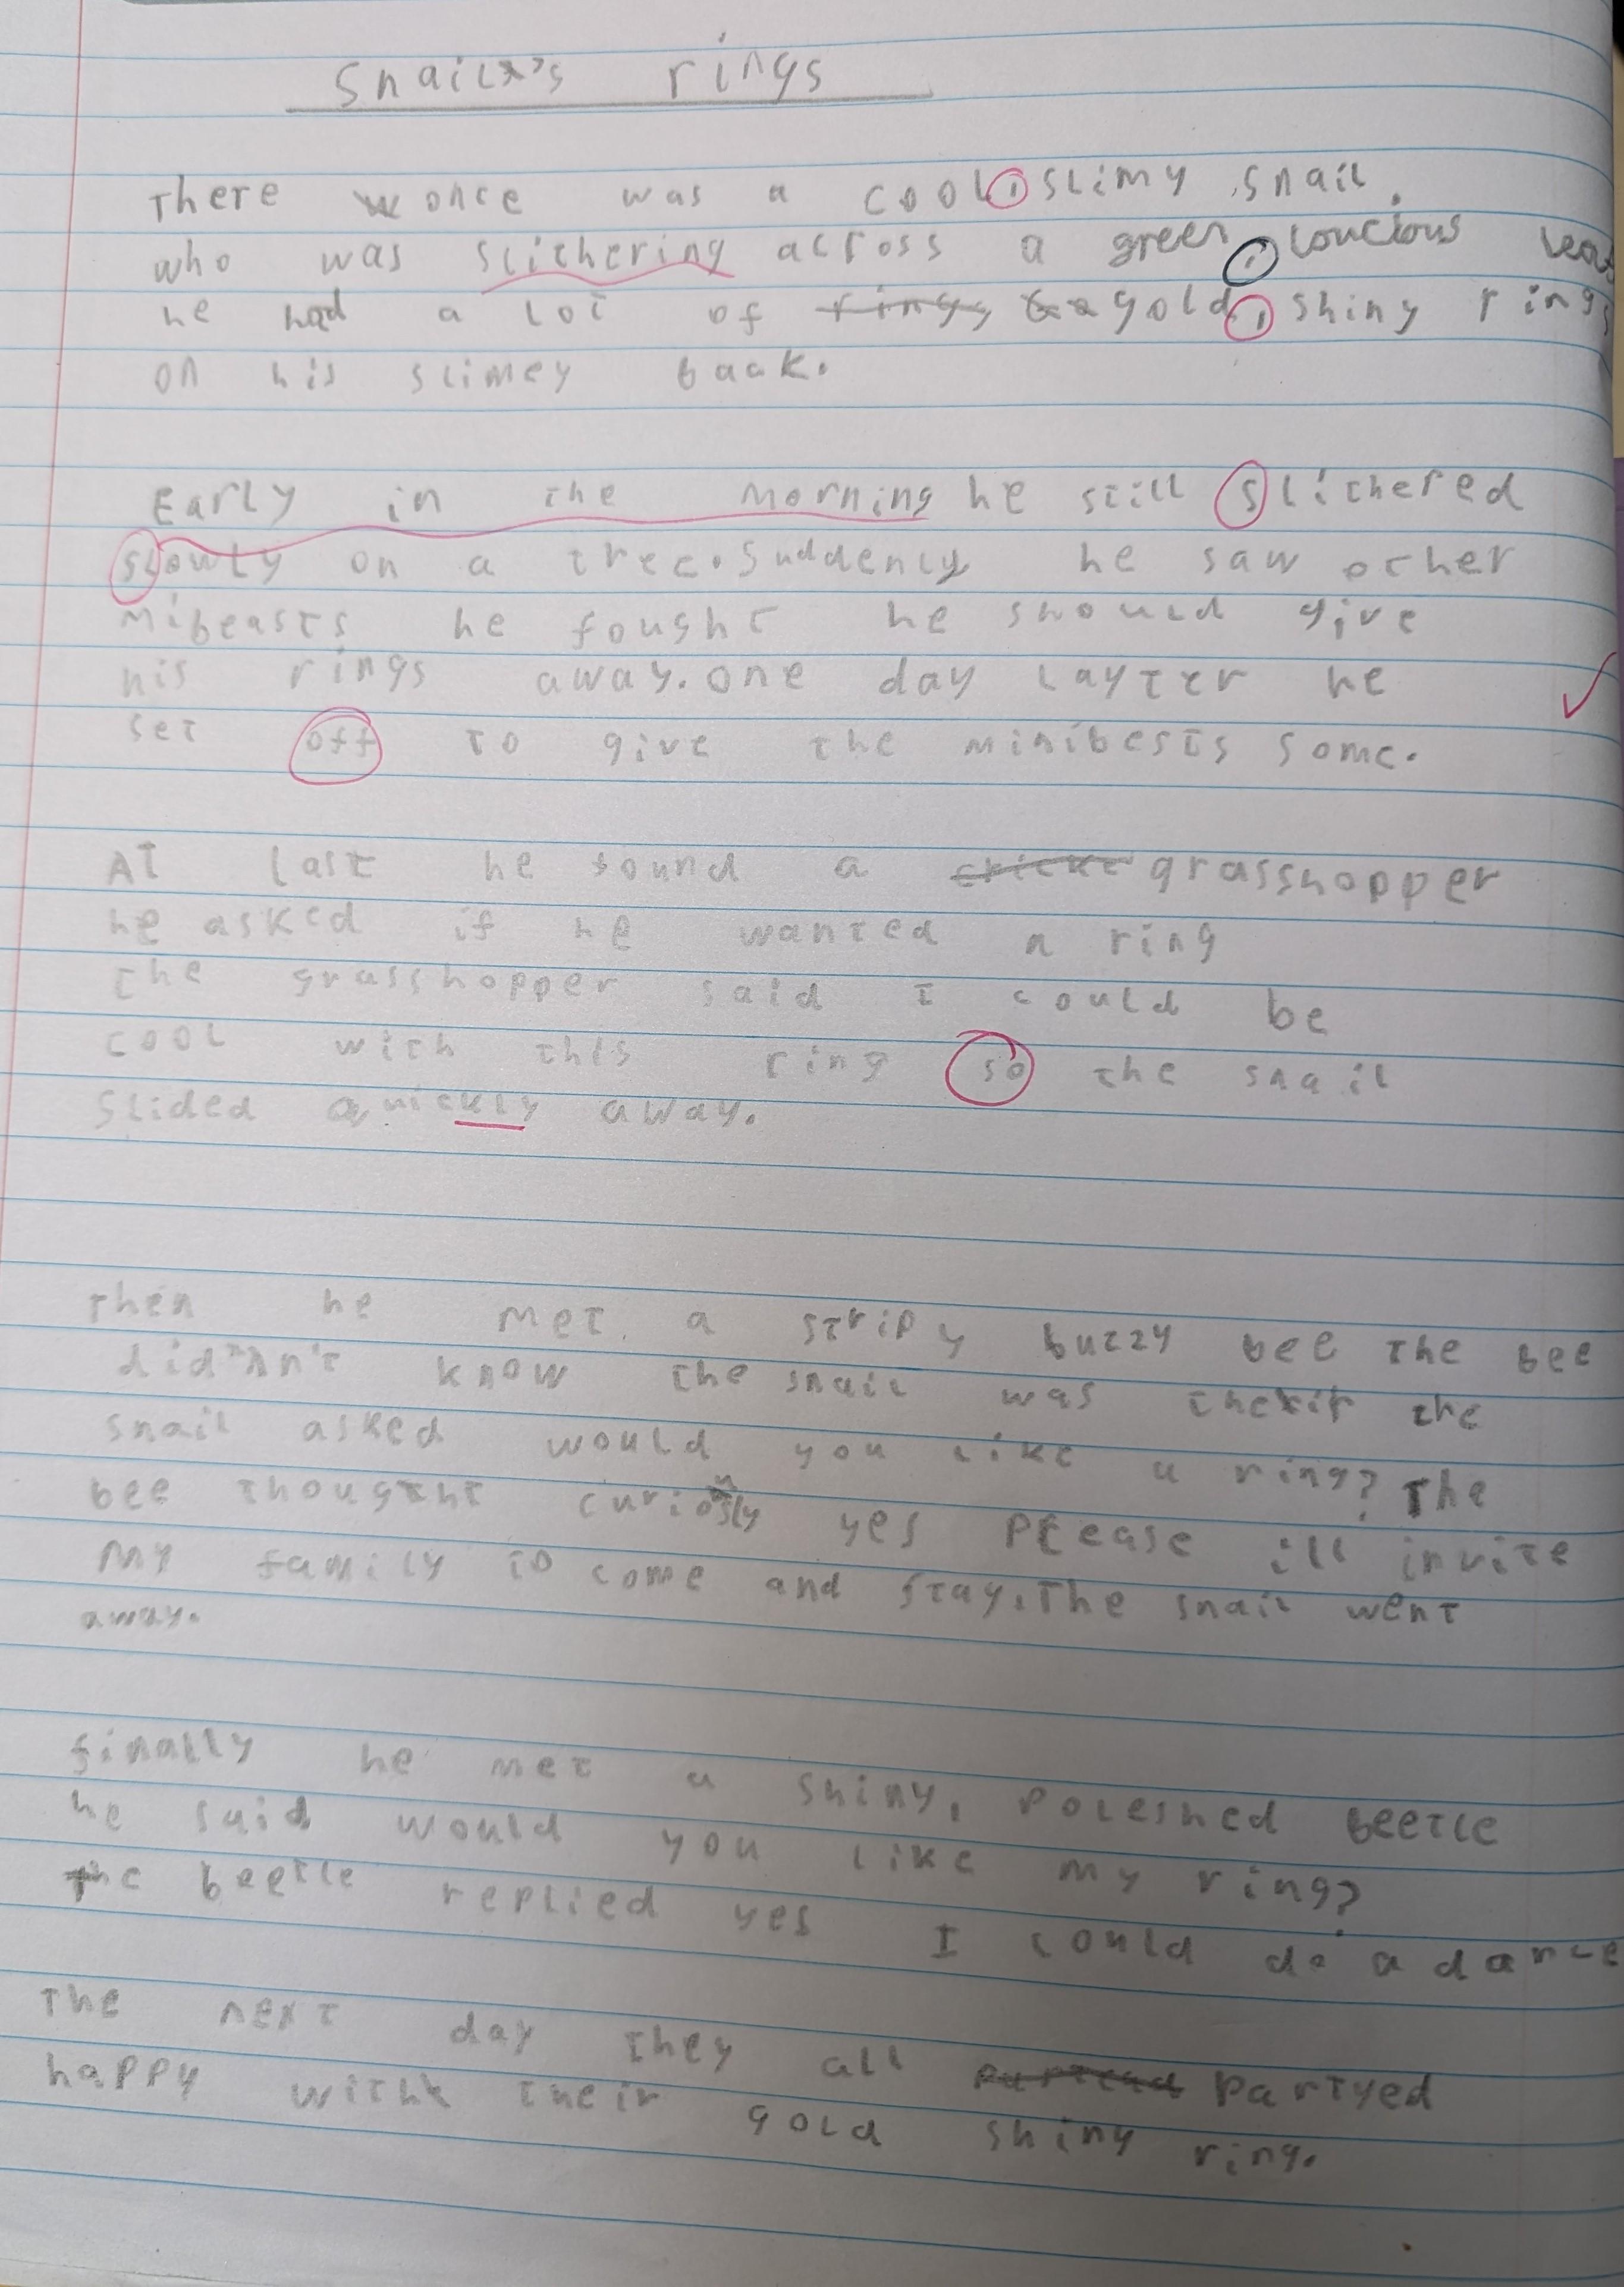 Snail's rings
There once was a cool, slimy snail.
who was slithering across a green, loucious leaf
he had a lot of rings gold, shiny rings
on his slimey back.
Early in the morning he still slithered
slowly on a tree. Suddenly he saw other
mibeasts he fought he should give
his rings away. one day layter he
set off to give the minibests some.
At last he found a cricket grasshopper
he asked if he wanted a ring
The grasshopper said I could be
cool with this ring so the snail
slided quickly away.
Then he met a stripy buzzy bee the bee
didn't know the snail was their the
snail asked would you like a ring? The
bee thought curiously yes please ill invite
my family to come and stay. The snail went
away.
finally he met a shiny, poleshed beetle
he said would you like my ring?
The beetle replied yes I could do a dance
The next day they all partyed
happy with their gold shiny ring.